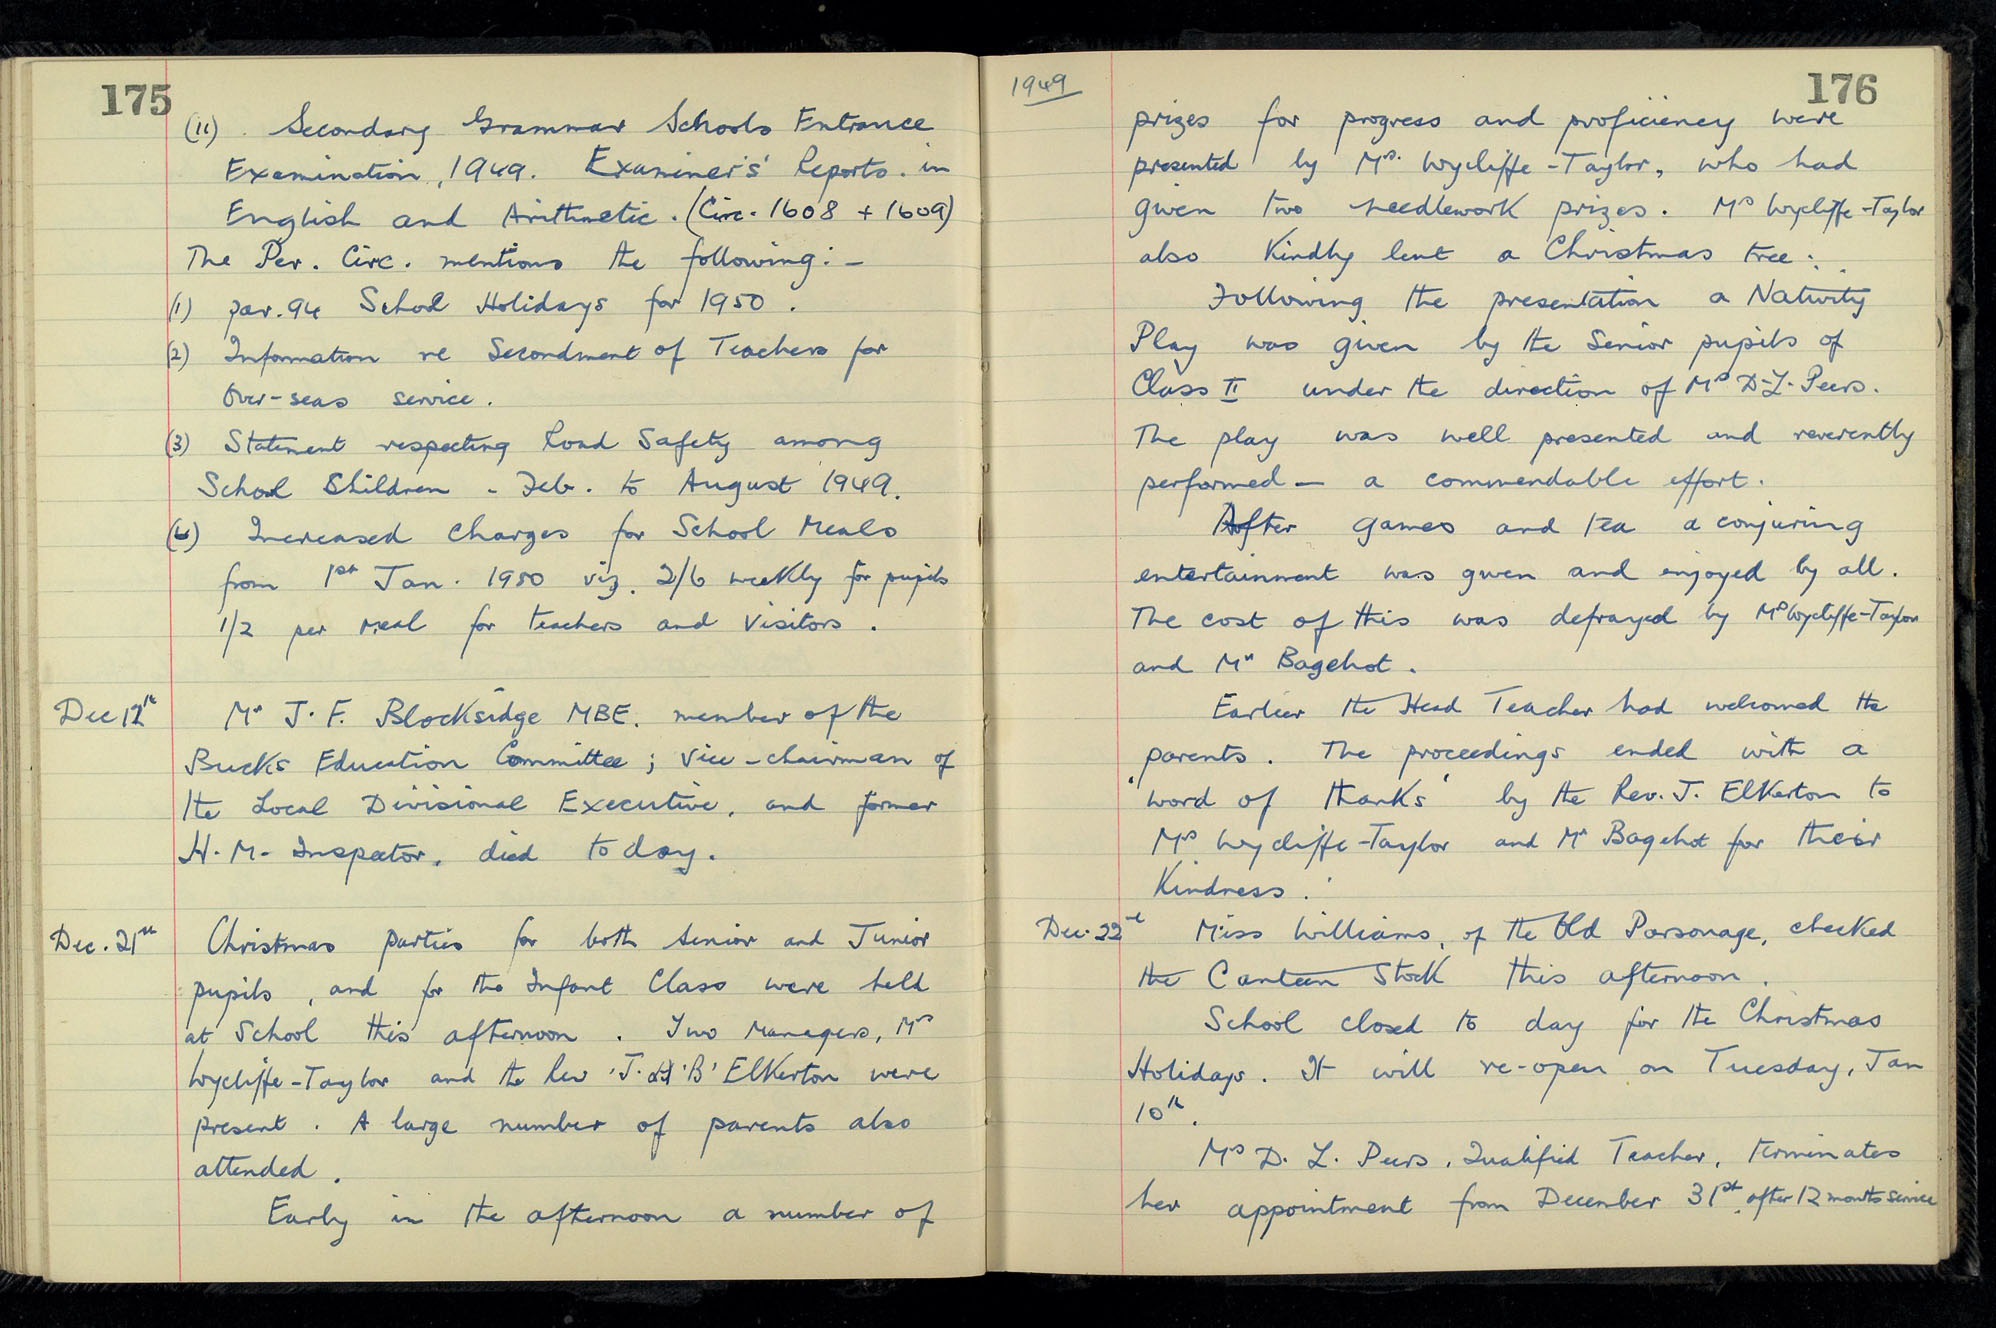 175
(11). Secondary Grammar Schools Entrance
Examination, 1949. Examiner's' Reports. in
English and Arithmetic. (Circ. 1608 + 1609)
The Per. Circ. mentions the following:-
(1) par. 94 School Holidays for 1950.
(2) Information re Secondment of Teachers for
Over-seas service.
(3) Statement respecting Road Safety among
School Children - Feb. to August 1949.
Increased Charges for School Meals
from 1st Jan. 1950 viz. 2/6 weekly for pupils
1/2 per meal for teachers and Visitors.
Dec 12th Mr J. F. Blocksidge MBE. member of the
Bucks Education Committee; Vice-chairman of
the Local Divisional Executive, and former
H. M. Inspector, died to day.
Dec. 21st Christmas parties for both Senior and Junior
pupils, and for the Infant Class were held
at School this afternoon. Two Managers, Mrs
Wycliffe-Taylor and the Rev 'J. B' Elkerton were
present. A large number of parents also
attended.
Early in the afternoon a number of
1949
176
prizes for progress and proficiency were
presented by Mrs. Wycliffe-Taylor, who had
given two needlework prizes. Mrs Wycliffe-Taylor
also Kindly lent a Christmas tree.
Following the presentation a Nativity
Play was given by the Senior pupils of
Class II under the direction of Mrs D. L. Peers.
The play was well presented and reverently
performed — a commendable effort.
After games and tea a conjuring
entertainment was given and enjoyed by all.
The cost of this was defrayed by Mrs Wycliffe-Taylor
and Mr Bagehot.
Earlier the Head Teacher had welcomed the
parents. The proceedings ended with a
'word of thanks' by the Rev. J. Elkerton to
Mrs Wycliffe-Taylor and Mr Bagehot for their
Kindness.
Dec. 22nd Miss Williams, of the Old Parsonage, checked
the Canteen Stock this afternoon.
School closed to day for the Christmas
Holidays. It will re-open on Tuesday, Jan
10th.
Mrs D. L. Peers, Qualified Teacher, terminates
her appointment from December 31st, after 12 months service